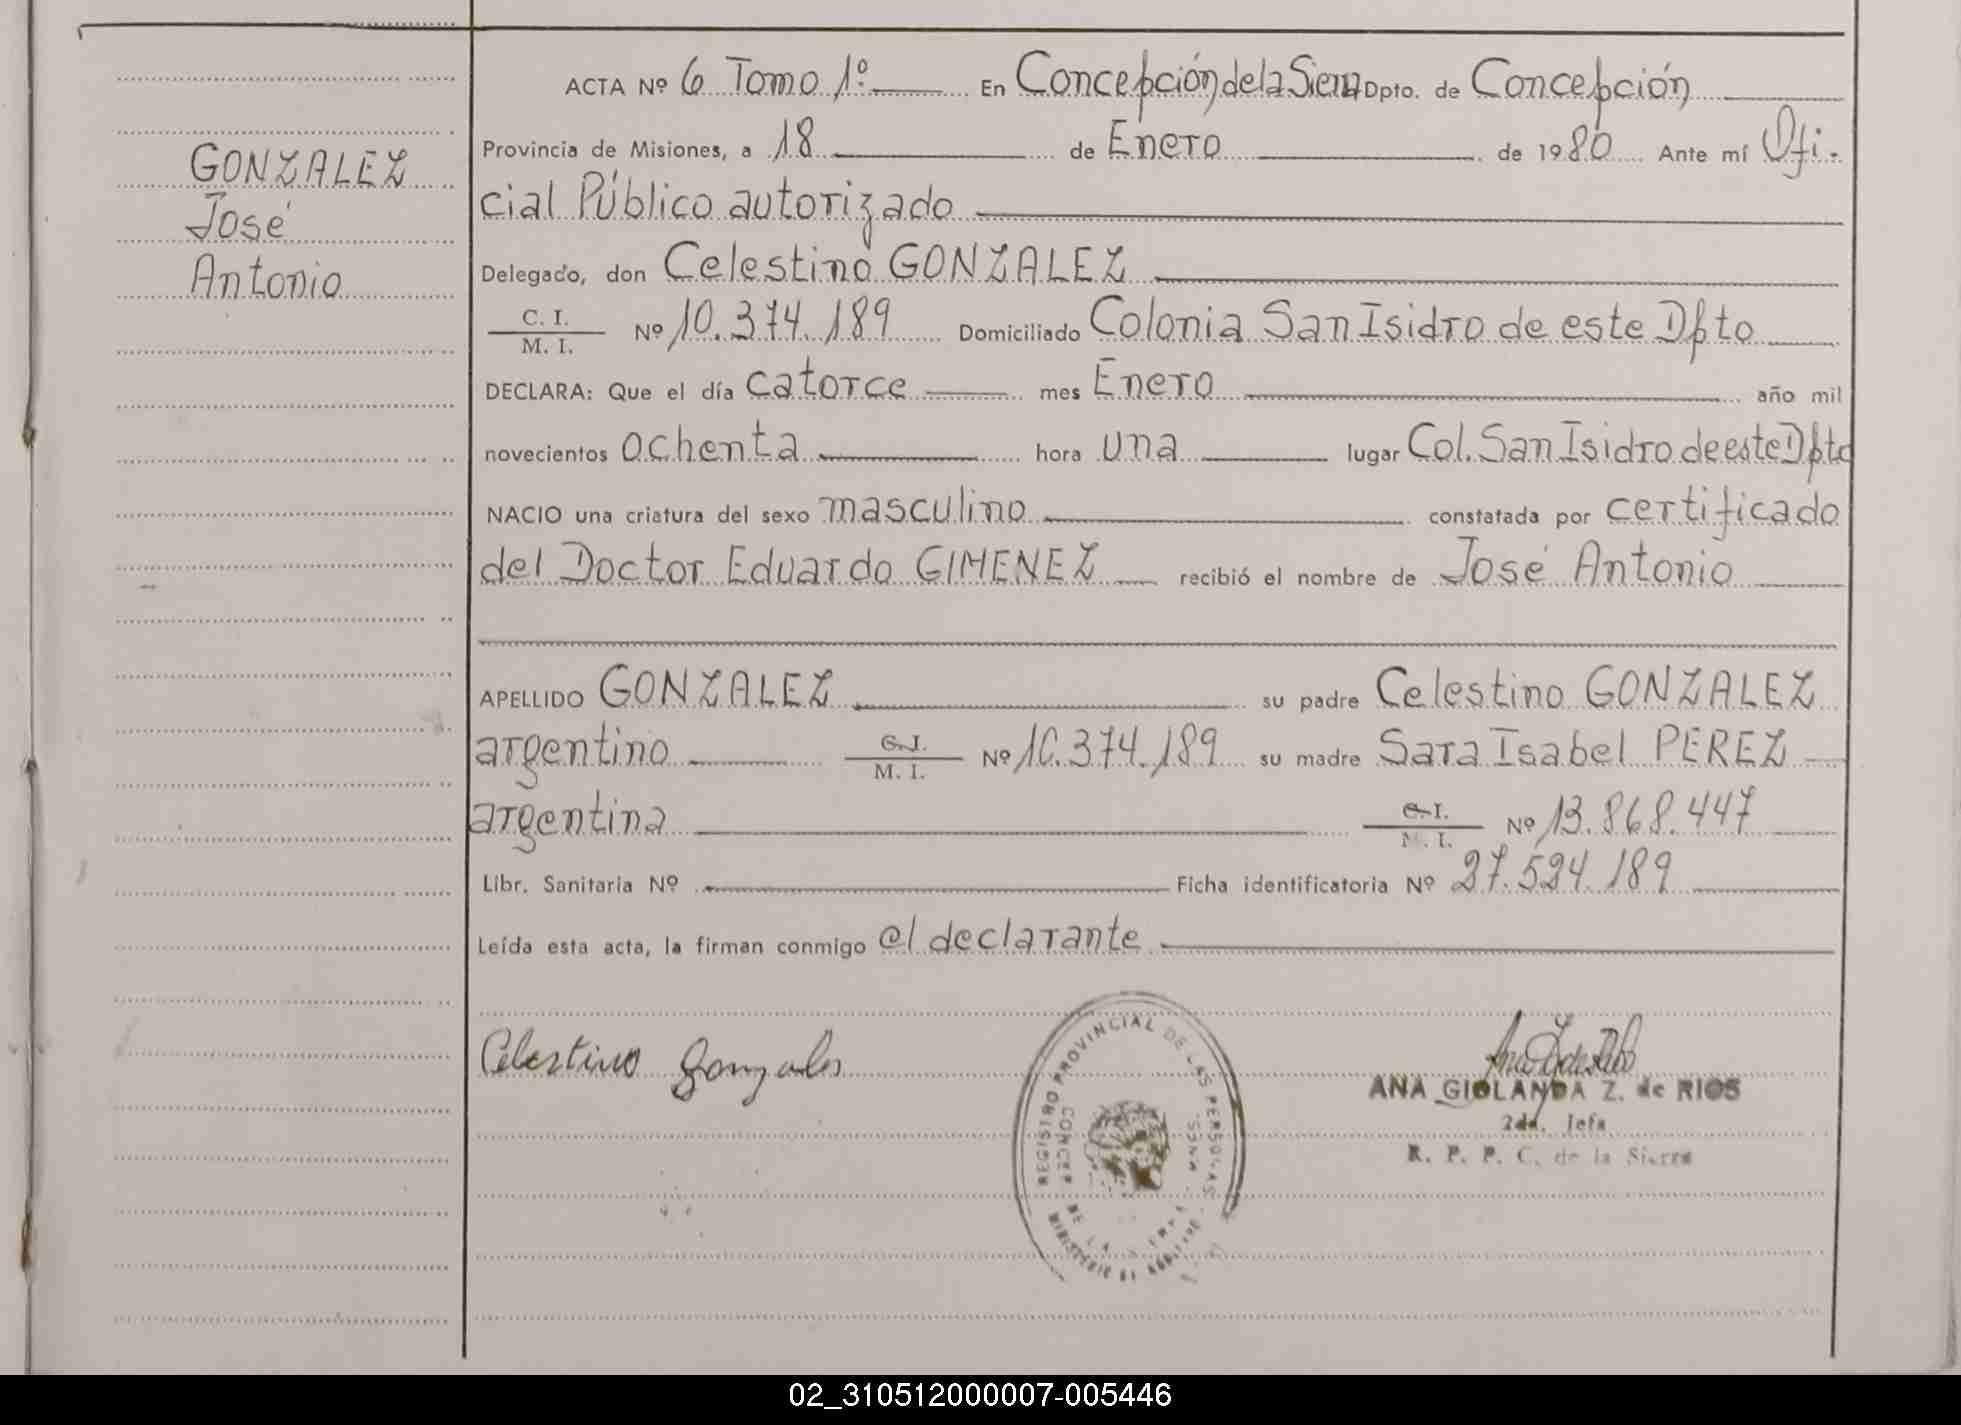 GONZALEZ
José
Antonio
ACTA Nº 6 Tomo 1º En Concepción de la Sierra Dpto. de Concepción
Provincia de Misiones, a 18 de Enero de 1980 Ante mí Ofi-
cial Público autorizado
Delegado, don Celestino GONZALEZ
C. I.
M. I. Nº 10.374.189 Domiciliado Colonia San Isidro de este Dpto
DECLARA: Que el día catorce mes Enero año mil
novecientos ochenta hora una lugar Col. San Isidro de este Dpto
NACIO una criatura del sexo masculino constatada por certificado
del Doctor Eduardo GIMENEZ recibió el nombre de José Antonio
APELLIDO GONZALEZ su padre Celestino GONZALEZ
argentino C. I.
M. I. Nº 10.374.189 su madre Sara Isabel PEREZ
argentina C. I.
M. I. Nº 13.868.447
Libr. Sanitaria Nº Ficha identificatoria Nº 27.524.189
Leída esta acta, la firman conmigo el declarante
Celestino Gonzales
REGISTRO PROVINCIAL DE LAS PERSONAS
ANA GIOLANDA Z. de RIOS
2da. Jefa
R. P. P. C. de la Sierra
02_310512000007-005446